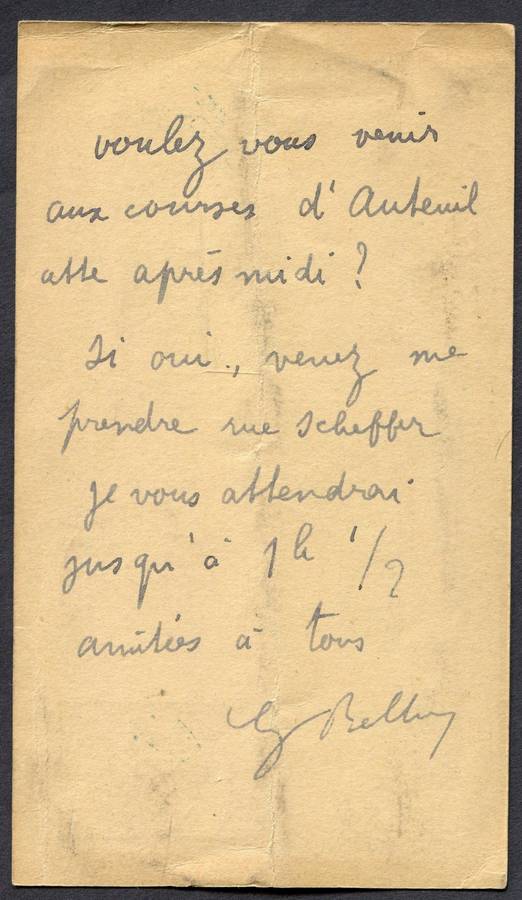 voulez vous venir
aux courses d'Auteuil
cette après midi ?
Si oui, venez me
prendre rue Scheffer
je vous attendrai
jusqu'à 1h 1/2
amitiés à tous